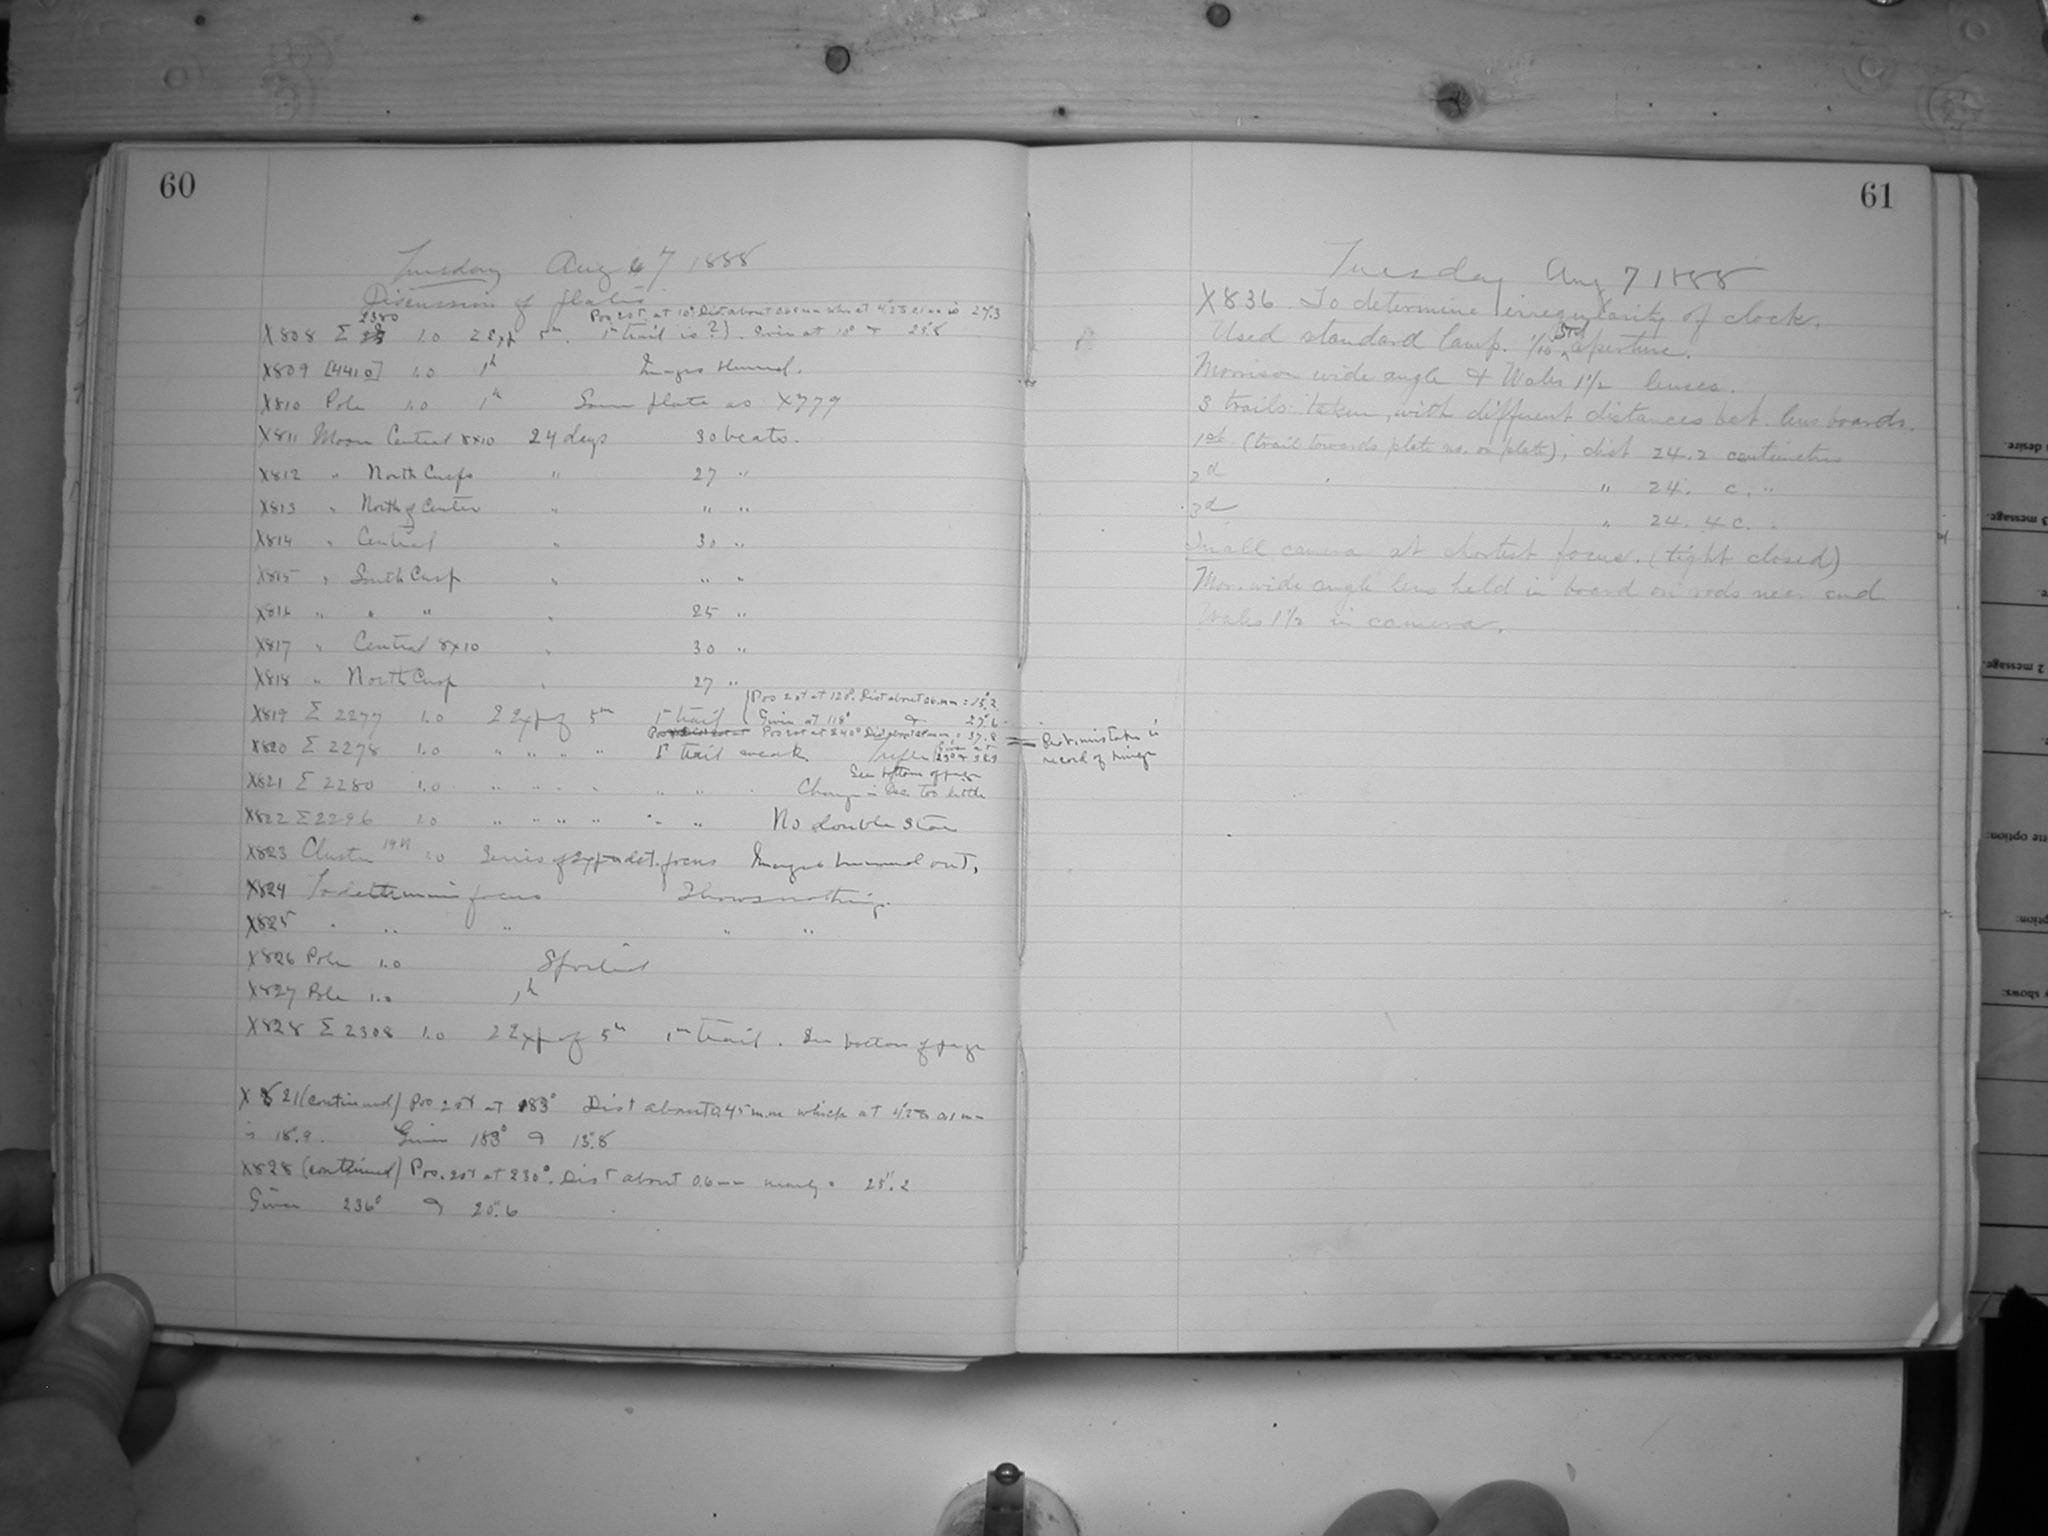 60
Tuesday Aug 7 1888
Discussion of plates
2380
Pos 20t. at 10° Dist about
X808 Σ 1.0 2 Exp 5m. 1m trail is ?). Given at 10° & 25.8
X809 [4410] 1.0 1h Images blurred.
X810 Pole 1.0 1h Same plate as X779
X811 Moon Central 8x10 24 days 30 beats.
X812 " North Cusps " 27 "
X813 " North of Center " " "
X814 " Central " 30 "
X815 " South Cusp " " "
X816 " " " " 25 "
X817 " Central 8x10 " 30 "
X818 " North Cusp " 27 "
Pos 20t at 120°. Dist about 0.6 mm = 25".2
X819 Σ 2277 1.0 2 Exp of 5m 1m trail Given at 118° & 27".6
Pos 20t at 240° Dist about mm = 37.8
X820 Σ 2278 1.0 " " " " 1m trail weak. Given at
Prob. mistake in
record of
See bottom of page
X821 Σ 2280 1.0 " " " " " " Change in Dec. too little
X822 Σ 2296 1.0 " " " " " " No double star
X823 Cluster 1.0 Series of Exp to det. focus Images blurred out.
X824 To determine focus Shows nothing.
X825 " " " " "
X826 Pole 1.0 Spoiled
X827 Pole 1.0 1h
X828 Σ 2308 1.0 2 Exp of 5m 1m trail. See bottom of page
X821 (continued) Pos 20t at 183° Dist about 0.45 mm which at 4".2 to 0.1 mm
is 18".9. Given 183° & 15".8
X828 (continued) Pos. 20t at 230°. Dist about 0.6 mm nearly = 25".2
Given 236° & 20".6
61
Tuesday Aug 7 1888
X836 To determine irregularity of clock.
Used standard lamp. 1/10 Std aperture.
Morrison wide angle & Wales 1 1/2 lenses.
3 trails taken, with different distances bet. lens boards.
1st. (trail towards plate no. on plate), dist 24.2 centimetres
2d " 24. c. "
3d " 24.4 c. "
Small camera at shortest focus. (tight closed)
Mor. wide angle lens held in board on rods near end
Wales 1 1/2 in camera.